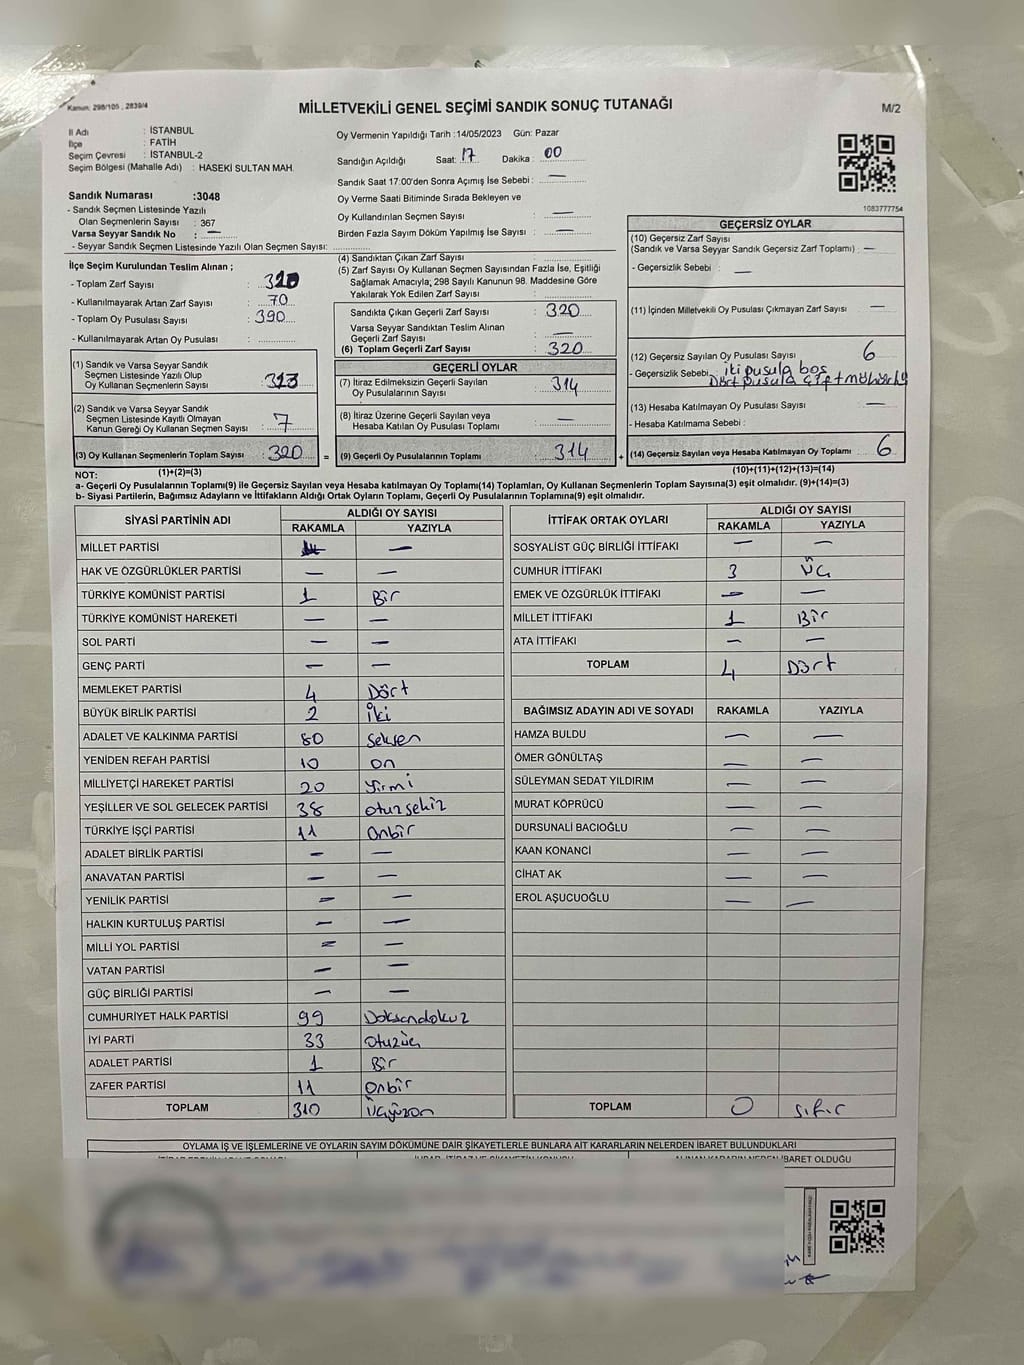 Kanun: 298/105 ; 2839/4
MİLLETVEKİLİ GENEL SEÇİMİ SANDIK SONUÇ TUTANAĞI
M/2
İl Adı : İSTANBUL
İlçe : FATİH
Seçim Çevresi : İSTANBUL-2
Seçim Bölgesi (Mahalle Adı) : HASEKİ SULTAN MAH.
Oy Vermenin Yapıldığı Tarih :14/05/2023 Gün: Pazar
Sandığın Açıldığı Saat: 17 Dakika : 00
Sandık Saat 17:00'den Sonra Açımış İse Sebebi : —
Oy Verme Saati Bitiminde Sırada Bekleyen ve
Oy Kullandırılan Seçmen Sayısı : —
Birden Fazla Sayım Döküm Yapılmış İse Sayısı : —
1083777754
Sandık Numarası :3048
- Sandık Seçmen Listesinde Yazılı
Olan Seçmenlerin Sayısı : 367
Varsa Seyyar Sandık No : —
- Seyyar Sandık Seçmen Listesinde Yazılı Olan Seçmen Sayısı:
İlçe Seçim Kurulundan Teslim Alınan ;
- Toplam Zarf Sayısı :
- Kullanılmayarak Artan Zarf Sayısı : 70
- Toplam Oy Pusulası Sayısı : 390
- Kullanılmayarak Artan Oy Pusulası :
(1) Sandık ve Varsa Seyyar Sandık
Seçmen Listesinde Yazılı Olup
Oy Kullanan Seçmenlerin Sayısı : 313
(2) Sandık ve Varsa Seyyar Sandık
Seçmen Listesinde Kayıtlı Olmayan
Kanun Gereği Oy Kullanan Seçmen Sayısı : 7
(3) Oy Kullanan Seçmenlerin Toplam Sayısı : 320
(4) Sandıktan Çıkan Zarf Sayısı :
(5) Zarf Sayısı Oy Kullanan Seçmen Sayısından Fazla İse, Eşitliği
Sağlamak Amacıyla; 298 Sayılı Kanunun 98. Maddesine Göre
Yakılarak Yok Edilen Zarf Sayısı :
Sandıkta Çıkan Geçerli Zarf Sayısı : 320
Varsa Seyyar Sandıktan Teslim Alınan
Geçerli Zarf Sayısı : —
(6) Toplam Geçerli Zarf Sayısı : 320
GEÇERLİ OYLAR
(7) İtiraz Edilmeksizin Geçerli Sayılan
Oy Pusulalarının Sayısı : 314
(8) İtiraz Üzerine Geçerli Sayılan veya
Hesaba Katılan Oy Pusulası Toplamı : —
= (9) Geçerli Oy Pusulalarının Toplamı : 314 +
GEÇERSİZ OYLAR
(10) Geçersiz Zarf Sayısı
(Sandık ve Varsa Seyyar Sandık Geçersiz Zarf Toplamı) : —
- Geçersizlik Sebebi : —
(11) İçinden Milletvekili Oy Pusulası Çıkmayan Zarf Sayısı : —
(12) Geçersiz Sayılan Oy Pusulası Sayısı : 6
- Geçersizlik Sebebi : iki pusula boş
Dört pusula çift mühürlü
(13) Hesaba Katılmayan Oy Pusulası Sayısı : —
- Hesaba Katılmama Sebebi :
(14) Geçersiz Sayılan veya Hesaba Katılmayan Oy Toplamı : 6
NOT: (1)+(2)=(3)
(10)+(11)+(12)+(13)=(14)
a- Geçerli Oy Pusulalarının Toplamı(9) ile Geçersiz Sayılan veya Hesaba katılmayan Oy Toplamı(14) Toplamları, Oy Kullanan Seçmenlerin Toplam Sayısına(3) eşit olmalıdır. (9)+(14)=(3)
b- Siyasi Partilerin, Bağımsız Adayların ve İttifakların Aldığı Ortak Oyların Toplamı, Geçerli Oy Pusulalarının Toplamına(9) eşit olmalıdır.
SİYASİ PARTİNİN ADI ALDIĞI OY SAYISI
RAKAMLA YAZIYLA
MİLLET PARTİSİ —
HAK VE ÖZGÜRLÜKLER PARTİSİ — —
TÜRKİYE KOMÜNİST PARTİSİ 1 Bir
TÜRKİYE KOMÜNİST HAREKETİ — —
SOL PARTİ — —
GENÇ PARTİ — —
MEMLEKET PARTİSİ 4 Dört
BÜYÜK BİRLİK PARTİSİ 2 İki
ADALET VE KALKINMA PARTİSİ 80 Seksen
YENİDEN REFAH PARTİSİ 10 on
MİLLİYETÇİ HAREKET PARTİSİ 20 yirmi
YEŞİLLER VE SOL GELECEK PARTİSİ 38 otuzsekiz
TÜRKİYE İŞÇİ PARTİSİ 11 Onbir
ADALET BİRLİK PARTİSİ — —
ANAVATAN PARTİSİ — —
YENİLİK PARTİSİ — —
HALKIN KURTULUŞ PARTİSİ — —
MİLLİ YOL PARTİSİ — —
VATAN PARTİSİ — —
GÜÇ BİRLİĞİ PARTİSİ — —
CUMHURİYET HALK PARTİSİ 99 Doksandokuz
İYİ PARTİ 33 otuzüç
ADALET PARTİSİ 1 Bir
ZAFER PARTİSİ 11 Onbir
TOPLAM 310 Üçyüzon
İTTİFAK ORTAK OYLARI ALDIĞI OY SAYISI
RAKAMLA YAZIYLA
SOSYALİST GÜÇ BİRLİĞİ İTTİFAKI — —
CUMHUR İTTİFAKI 3 Üç
EMEK VE ÖZGÜRLÜK İTTİFAKI — —
MİLLET İTTİFAKI 1 Bir
ATA İTTİFAKI — —
TOPLAM 4 Dört
BAĞIMSIZ ADAYIN ADI VE SOYADI RAKAMLA YAZIYLA
HAMZA BULDU — —
ÖMER GÖNÜLTAŞ — —
SÜLEYMAN SEDAT YILDIRIM — —
MURAT KÖPRÜCÜ — —
DURSUNALİ BACIOĞLU — —
KAAN KONANCİ — —
CİHAT AK — —
EROL AŞUCUOĞLU — —
TOPLAM 0 sıfır
OYLAMA İŞ VE İŞLEMLERİNE VE OYLARIN SAYIM DÖKÜMÜNE DAİR ŞİKAYETLERLE BUNLARA AİT KARARLARIN NELERDEN İBARET BULUNDUKLARI
İBARET OLDUĞU